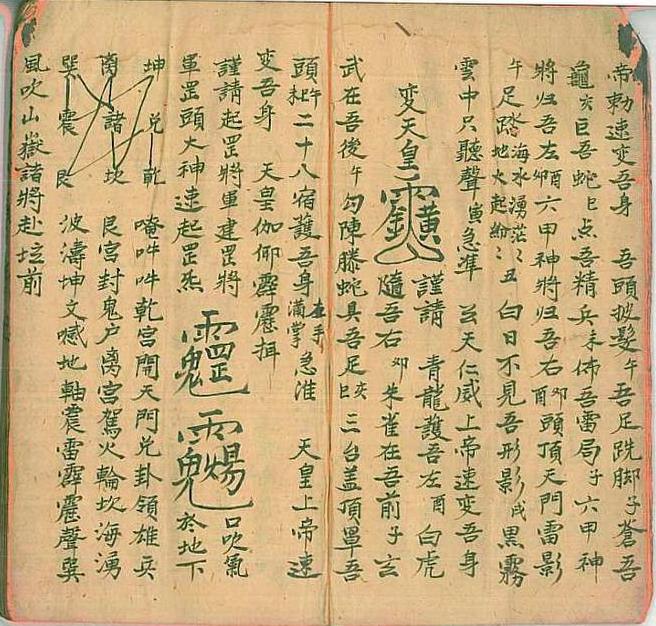 帝勅速变吾身　吾頭披髮午吾足跣脚子蒼吾
龜亥巨吾蛇巳点吾精兵未佈吾雷局子六甲神
將归吾左卯酉六甲神將归吾右酉卯頭頂天門雷影
午足踏海水湧茫〻地火起紛〻丑白日不見吾形影戌黑霧
雲中只聽聲寅急準　玆天仁威上帝速变吾身
变天皇　謹請　青龍護吾左酉白虎
隨吾右卯朱雀在吾前子玄
武在吾後午勾陳滕蛇具吾足巳亥三台盖頂罩吾
頭午二十八宿護吾身在手滿掌急准　天皇上帝速
变吾身　天皇伽㑘霹靂揖
謹請起罡將軍建罡將　口吹氣
軍罡頭大神速起罡炁　於地下
坤　兌　乾　唵吽吽乾宮開天門兌卦領雄兵
离　諸　坎　艮宮封鬼户离宮駕火輪坎海湧
巽　震　艮　波濤坤文喊地軸震雷霹靂聲巽
風吹山嶽諸將赴坛前